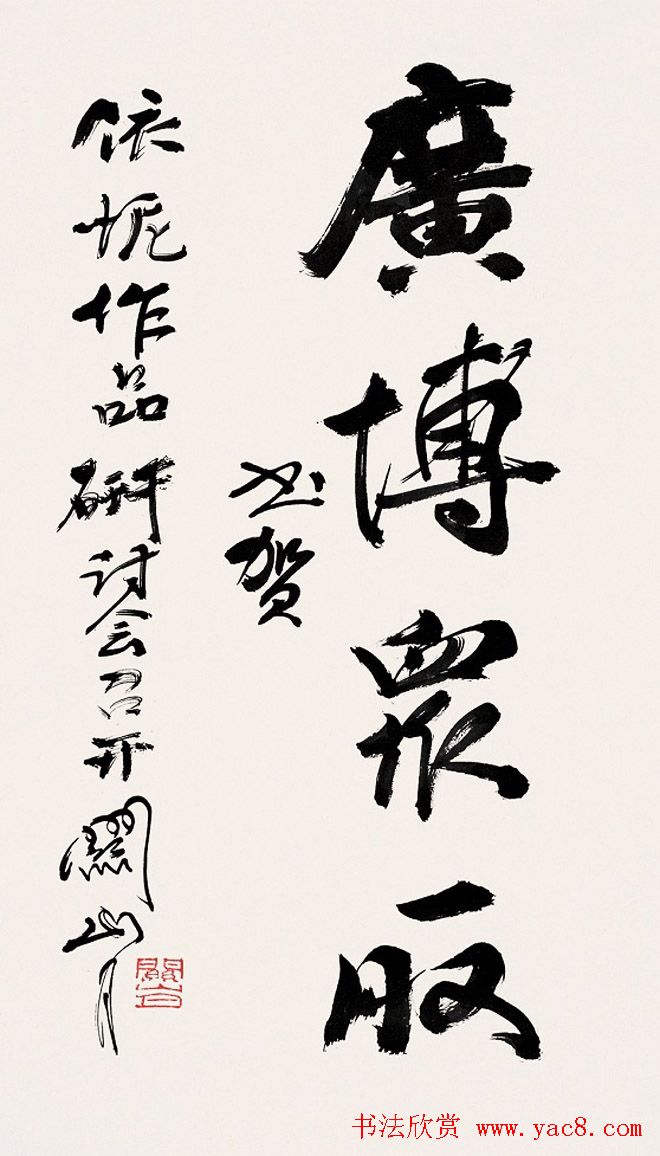 廣博眾取
书贺
依妮作品研讨会召开
關山月
书法欣赏 www.yac8.com